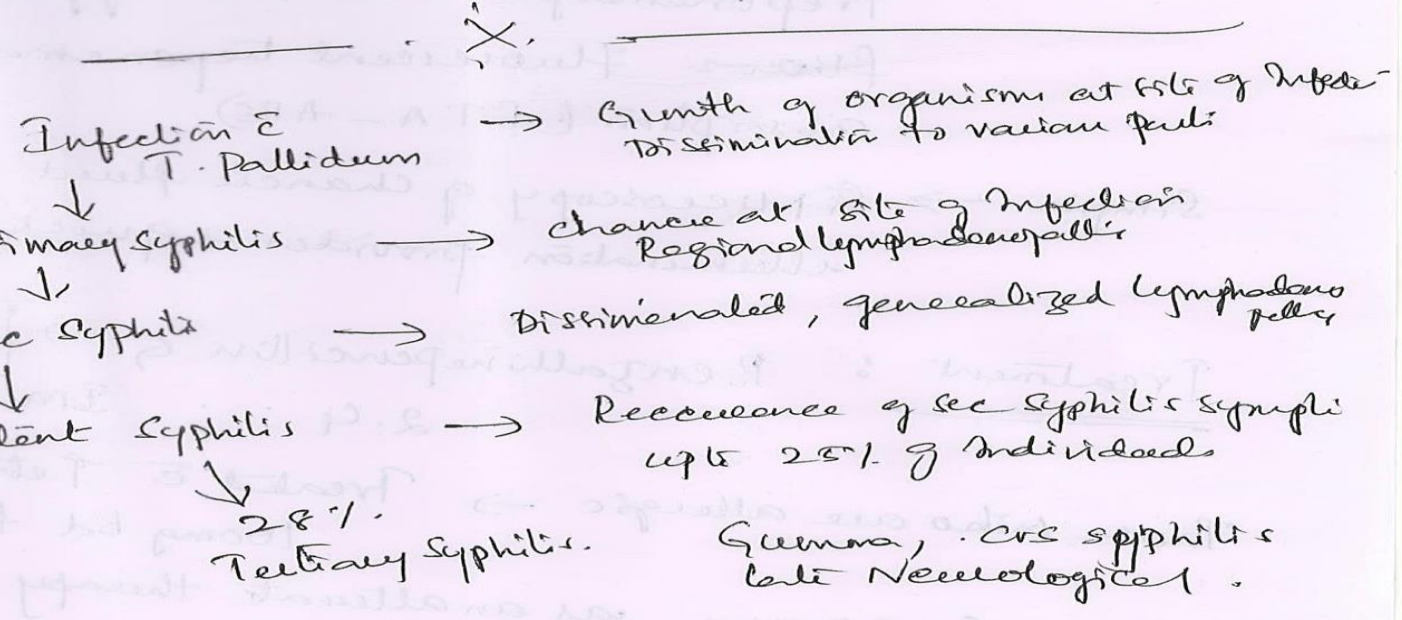 . X .
Infection c̄ → Growth of organism at site of Infecti-
T. Pallidum Dissimination to various parts
↓
imary Syphilis → chancre at site of Infection
Regional lymphadenopathy
↓
c Syphilis → Dissiminated, generalized lymphadeno
pathy
↓
tent Syphilis → Reccurence of sec syphilis sympt
upto 25% of Individuals
↓
28%.
Tertiary Syphilis. Gumma, CVS syphilis
late Neurological.